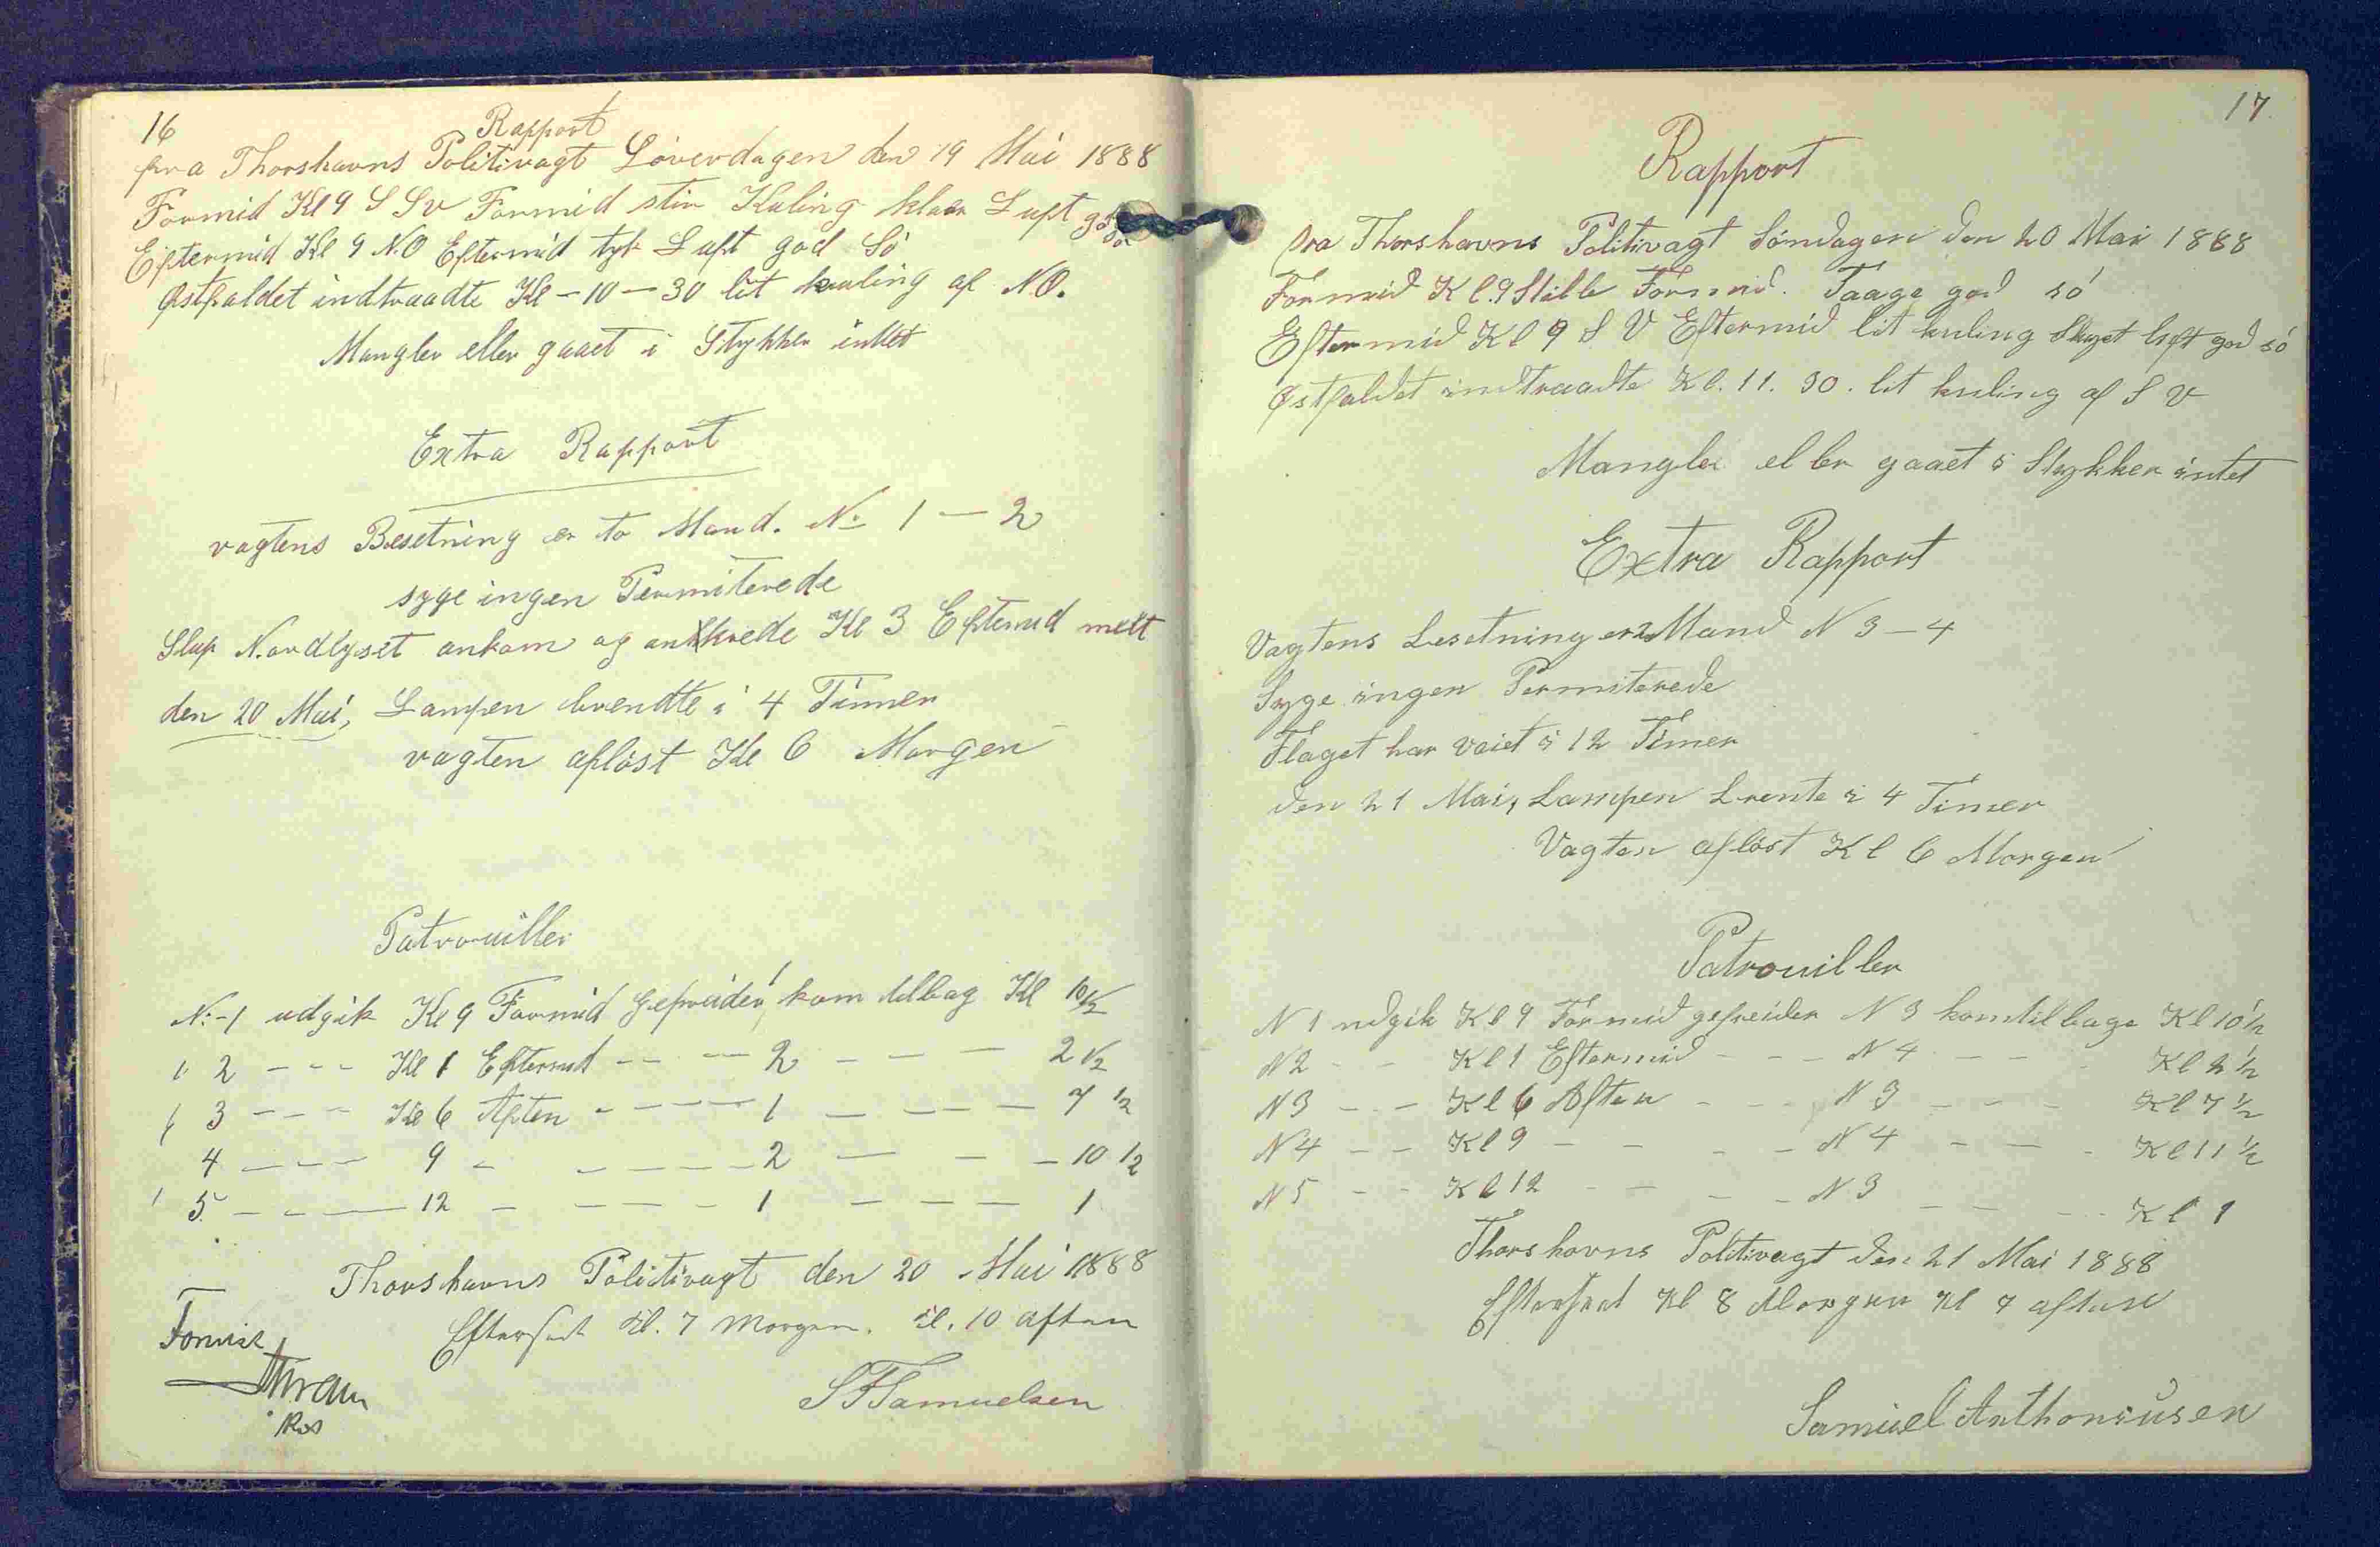 16
Rapport
fra Thorshavns Politivagt Löverdagen den 19 Mai 1888
Formid Kl 9 S Sv Formid stiv Kuling klaar Luft god Sö
Eftermid Kl 9 N.O Eftermid tyk Luft god Sö
Østfaldet indtraadte Kl - 10 - 30 lit kuling af NO.
Mangler eller gaaet i Stykker intet
Extra Rapport
vagtens Besetning er to Mand. No 1 - 2
syge ingen Permiterede
Slup Nordlyset ankom og ankrede Kl 3 Eftermid
den 20 Mai, Lampen brendte i 4 Timer
vagten aflöst Kl 6 Morgen
Patrouiller
No - 1 udgik Kl 9 Formid Gefreider 1 kom tilbag Kl 10 1/2
" 2 - - - Kl 1 Eftermid - - - 2 - - - 2 1/2
" 3 - - - Kl 6 Aften - - - - 1 - - - 7 1/2
4 - - - 9 - - - - - 2 - - - 10 1/2
" 5 - - - 12 - - - - 1 - - - 1
Thorshavns Politivagt den 20 Mai 1888
Efterseet Kl. 7 Morgen. Kl. 10 aften
SFSamuelsen
17.
Rapport
fra Thorshavns Politivagt Söndagen den 20 Mai 1888
Formid Kl. 9 Stille Formid. Taage god sö
Eftermid Kl 9 S V Eftermid lit kuling Skyet luft god sö
Østfaldet indtraadte Kl. 11. 30. lit kuling af S V
Mangler eller gaaet i Stykker intet
Extra Rapport
Vagtens besetning er 2 Mand N 3 - 4
Syge ingen Permiterede
Flaget har vaiet i 12 Timer
den 21 Mai, Lampen brente i 4 Timer
Vagten aflöst Kl 6 Morgen
Patrouiller
N 1 udgik Kl 9 Formid gefreider N 3 kom tilbage Kl 10 1/2
N 2 - - Kl 1 Eftermid - - - N 4 - - - Kl 2 1/2
N 3 - - Kl 6 Aften - - - N 3 - - - Kl 7 1/2
N 4 - - Kl 9 - - - - N 4 - - - Kl 11 1/2
N 5 - - Kl 12 - - - - N 3 - - - Kl 1
Thorshavns Politivagt den 21 Mai 1888
Efterseet Kl 8 Morgen Kl 7 aften
Samuel Anthoniusen